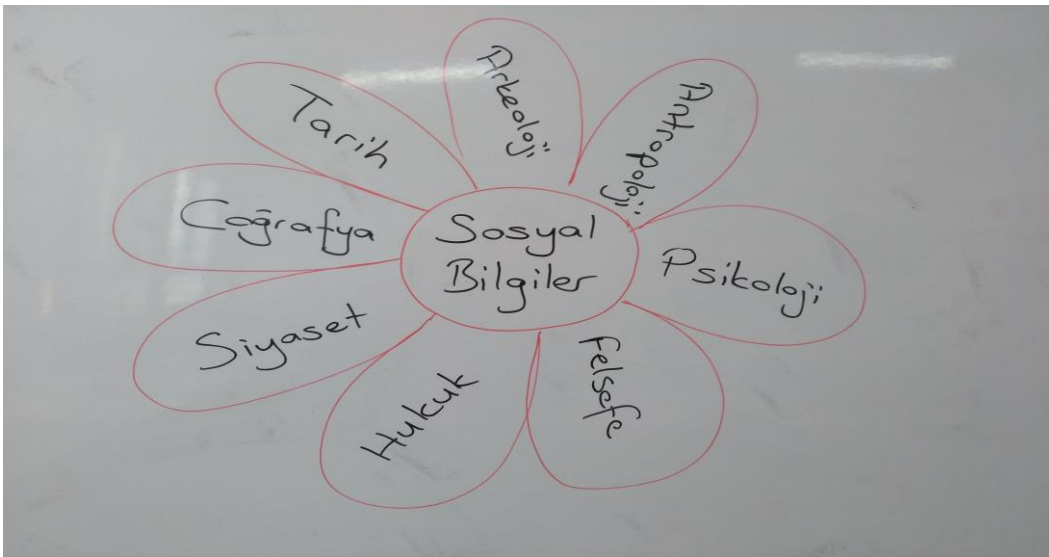 Sosyal
Bilgiler
Arkeoloji
Antropoloji
Psikoloji
Felsefe
Hukuk
Siyaset
Coğrafya
Tarih